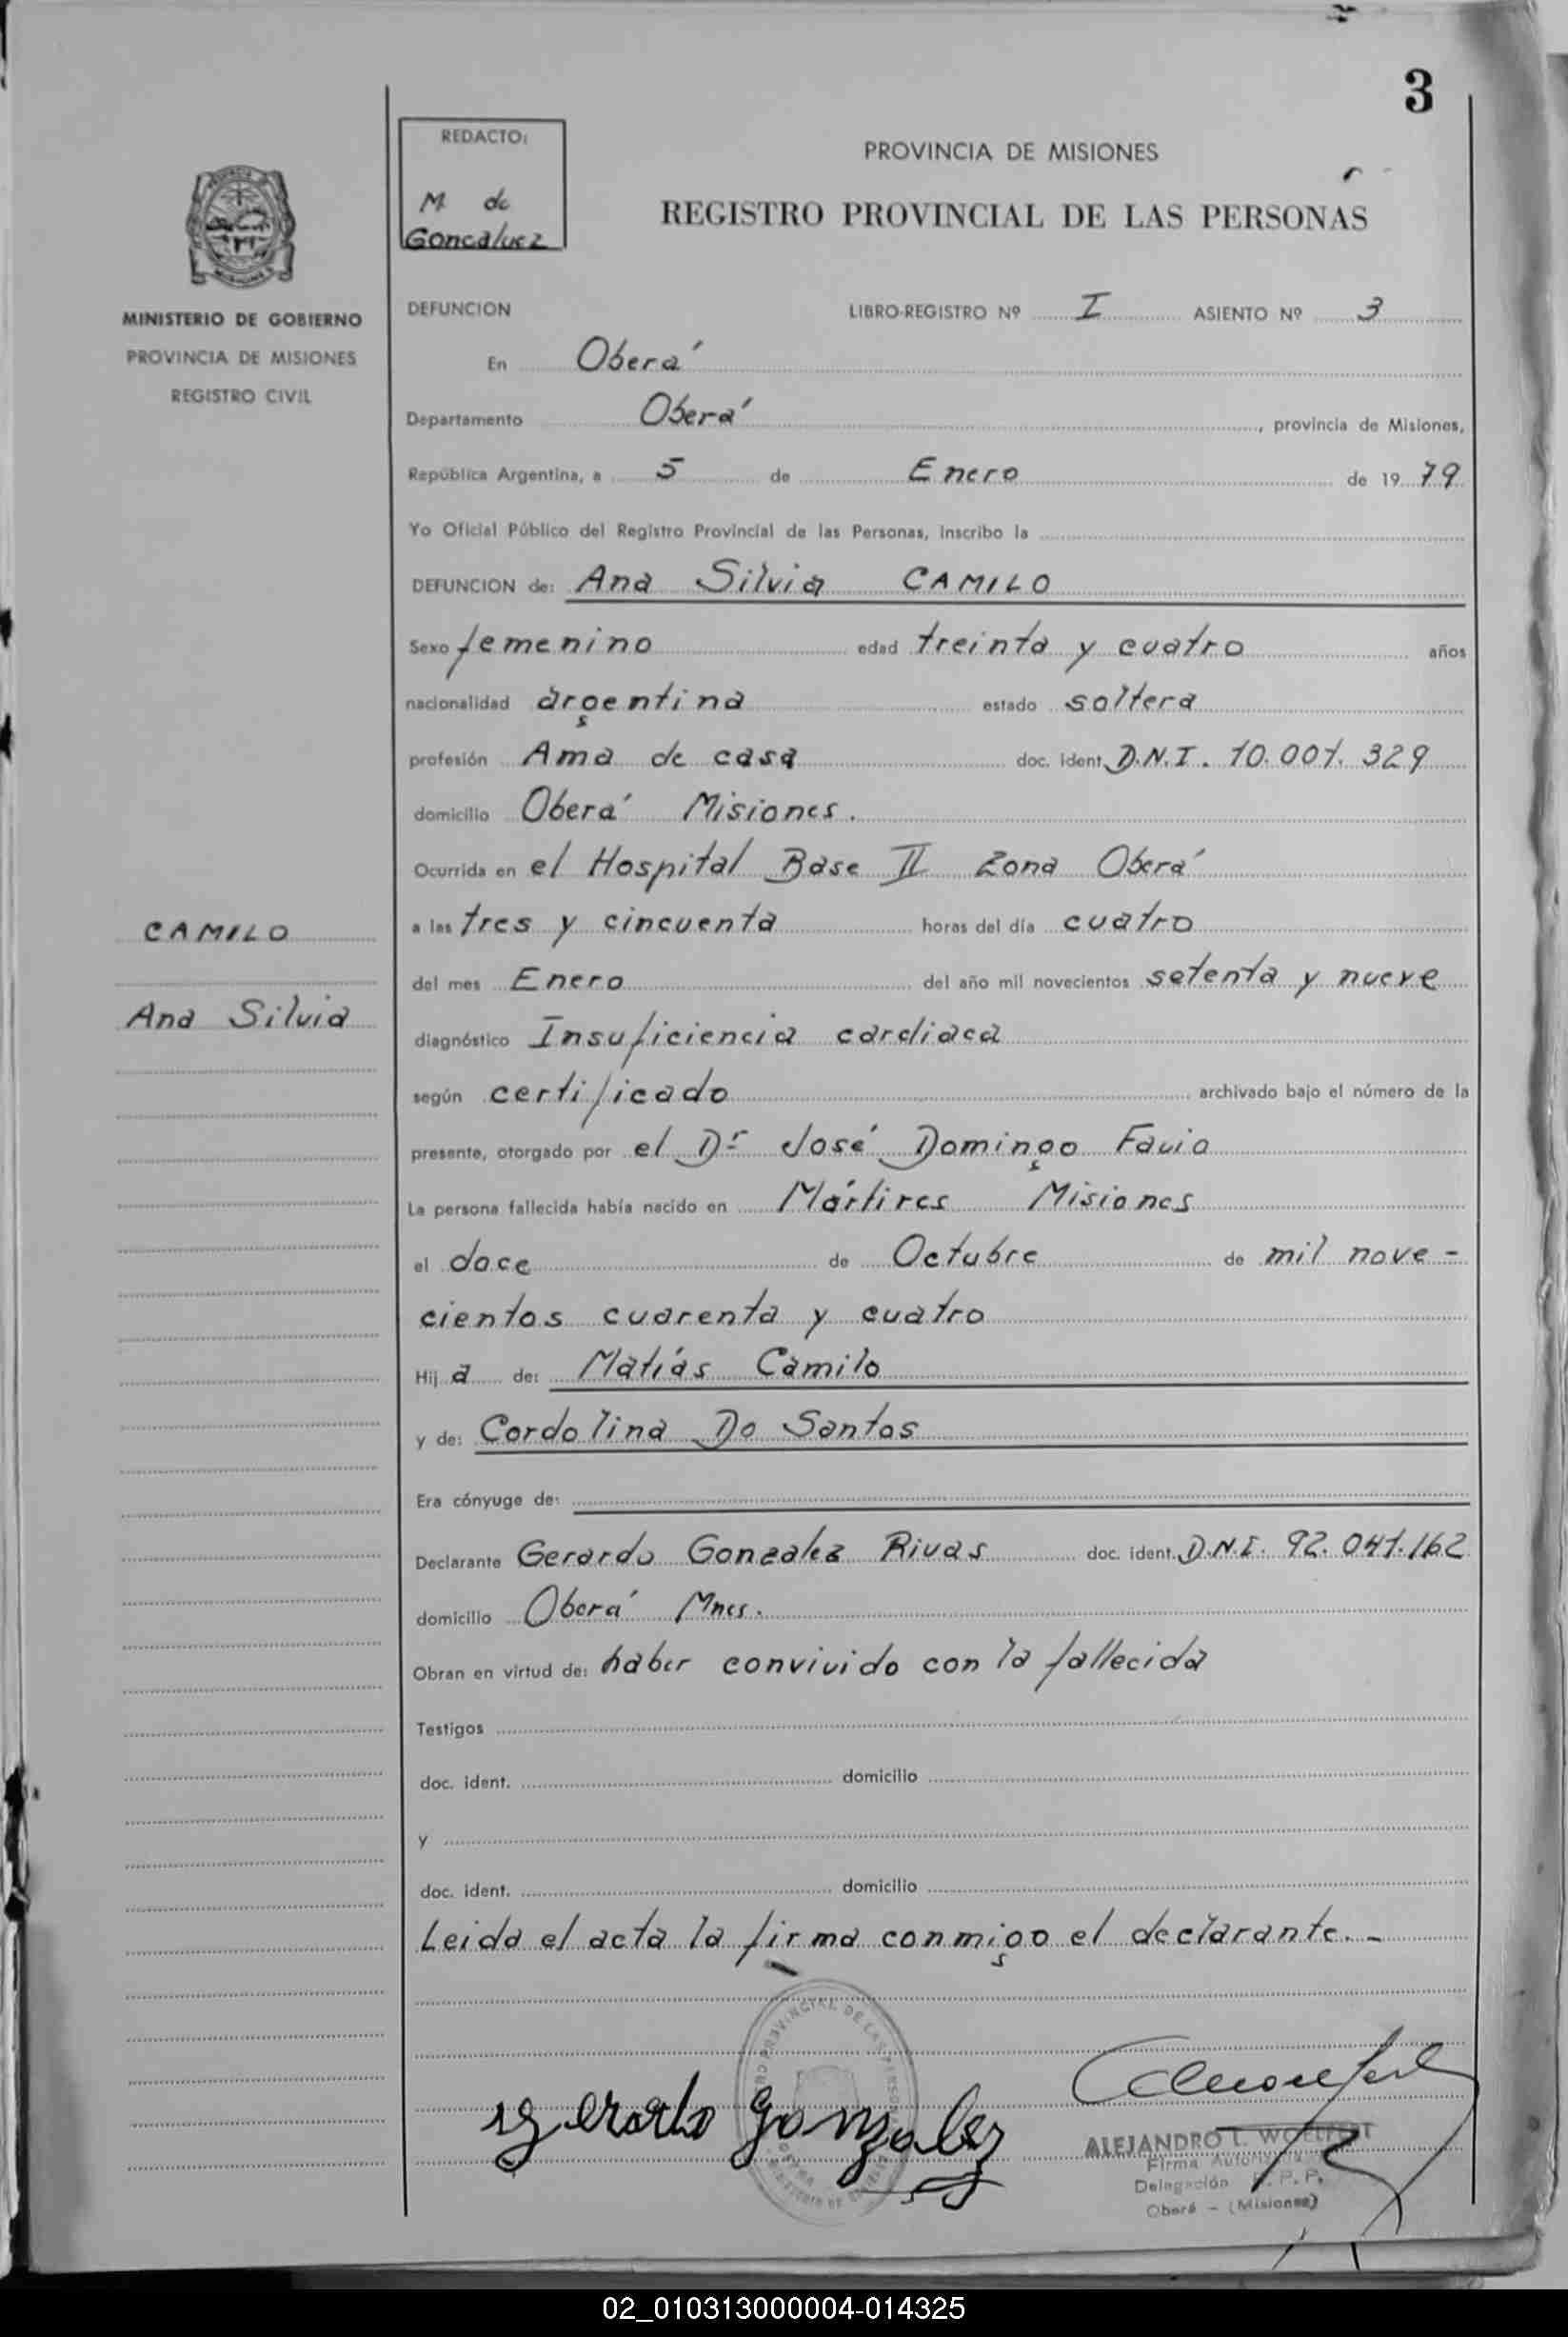 3
REDACTO:
M de
Goncalvez
PROVINCIA DE MISIONES
REGISTRO PROVINCIAL DE LAS PERSONAS
MINISTERIO DE GOBIERNO
PROVINCIA DE MISIONES
REGISTRO CIVIL
DEFUNCION LIBRO-REGISTRO Nº I ASIENTO Nº 3
En Oberá
Departamento Oberá, provincia de Misiones,
República Argentina, a 5 de Enero de 1979
Yo Oficial Público del Registro Provincial de las Personas, inscribo la
DEFUNCION de: Ana Silvia CAMILO
Sexo femenino edad treinta y cuatro años
nacionalidad argentina estado soltera
profesión Ama de casa doc. ident. D.N.I. 10.007.329
domicilio Oberá Misiones.
Ocurrida en el Hospital Base II Zona Oberá
CAMILO
Ana Silvia
a las tres y cincuenta horas del día cuatro
del mes Enero del año mil novecientos setenta y nueve
diagnóstico Insuficiencia cardiaca
según certificado archivado bajo el número de la
presente, otorgado por el Dr José Domingo Favio
La persona fallecida había nacido en Mártires Misiones
el doce de Octubre de mil nove-
cientos cuarenta y cuatro
Hija de: Matías Camilo
y de: Cordolina Do Santos
Era cónyuge de:
Declarante Gerardo Gonzalez Rivas doc. ident. D.N.I. 92.041.162
domicilio Oberá Mnes.
Obran en virtud de: haber convivido con la fallecida
Testigos
doc. ident. domicilio
y
doc. ident. domicilio
Leida el acta la firma conmigo el declarante.-
Gerardo Gonzalez
ALEJANDRO L. WOELFERT
Firma
Delegación R.P.P.
Oberá - (Misiones)
02_010313000004-014325